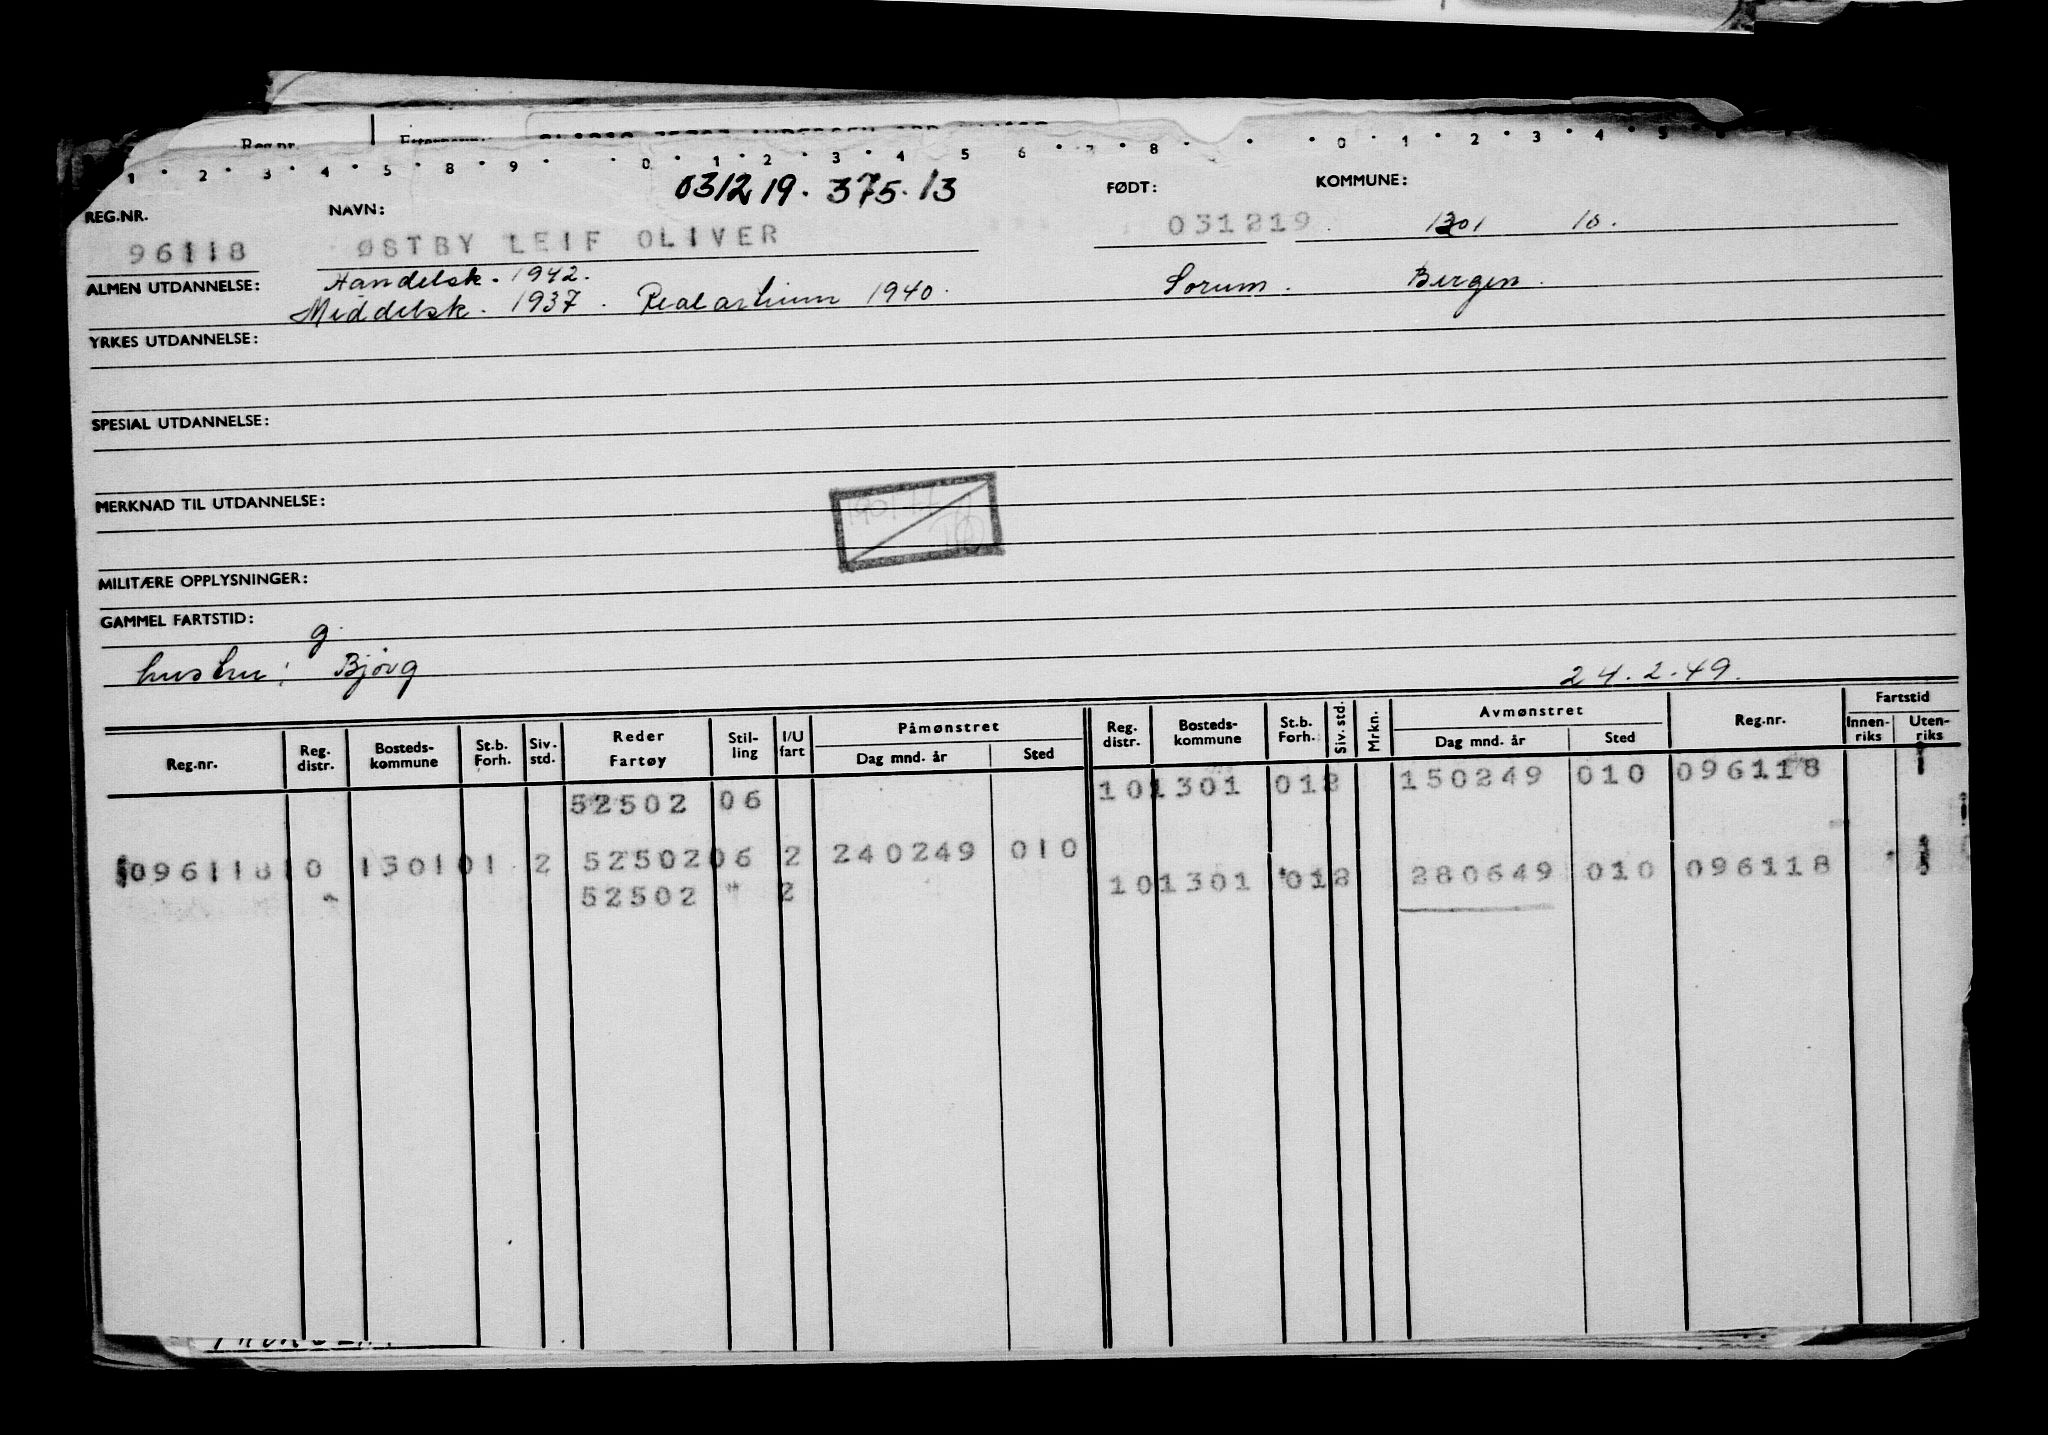 Reg.nr.
1 · 2 · 3 · 4 · 5 · 8 · 9 · 0 · 1 · 2 · 3 · 4 5 6 · 7 · 8 · · · 0 · 1 · 2 · 3 · 4 · 5
031219. 375.13
REG.NR. NAVN: FØDT: KOMMUNE:
96118 ØSTBY LEIF OLIVER 031219 1301 10.
ALMEN UTDANNELSE: Handelsk. 1942. Sorum. Bergen.
Middelsk. 1937. Realartium 1940.
YRKES UTDANNELSE:
SPESIAL UTDANNELSE:
MERKNAD TIL UTDANNELSE:
MILITÆRE OPPLYSNINGER:
GAMMEL FARTSTID:
g.
hustru: Bjørg 24.2.49.
Reg.nr. Reg. distr. Bosteds- kommune St.b. Forh. Siv. std. Reder Fartøy Stil- ling I/U fart Påmønstret Dag mnd. år Sted Reg. distr. Bosteds- kommune St.b. Forh. Siv. std. Mrkn. Avmønstret Dag mnd. år Sted Reg.nr. Fartstid Innen- riks Uten- riks
52502 06 10 1301 01 2 150249 010 096118 1
096118 10 1301 01 2 52502 06 2 240249 010
52502 " 2 10 1301 01 2 280649 010 096118